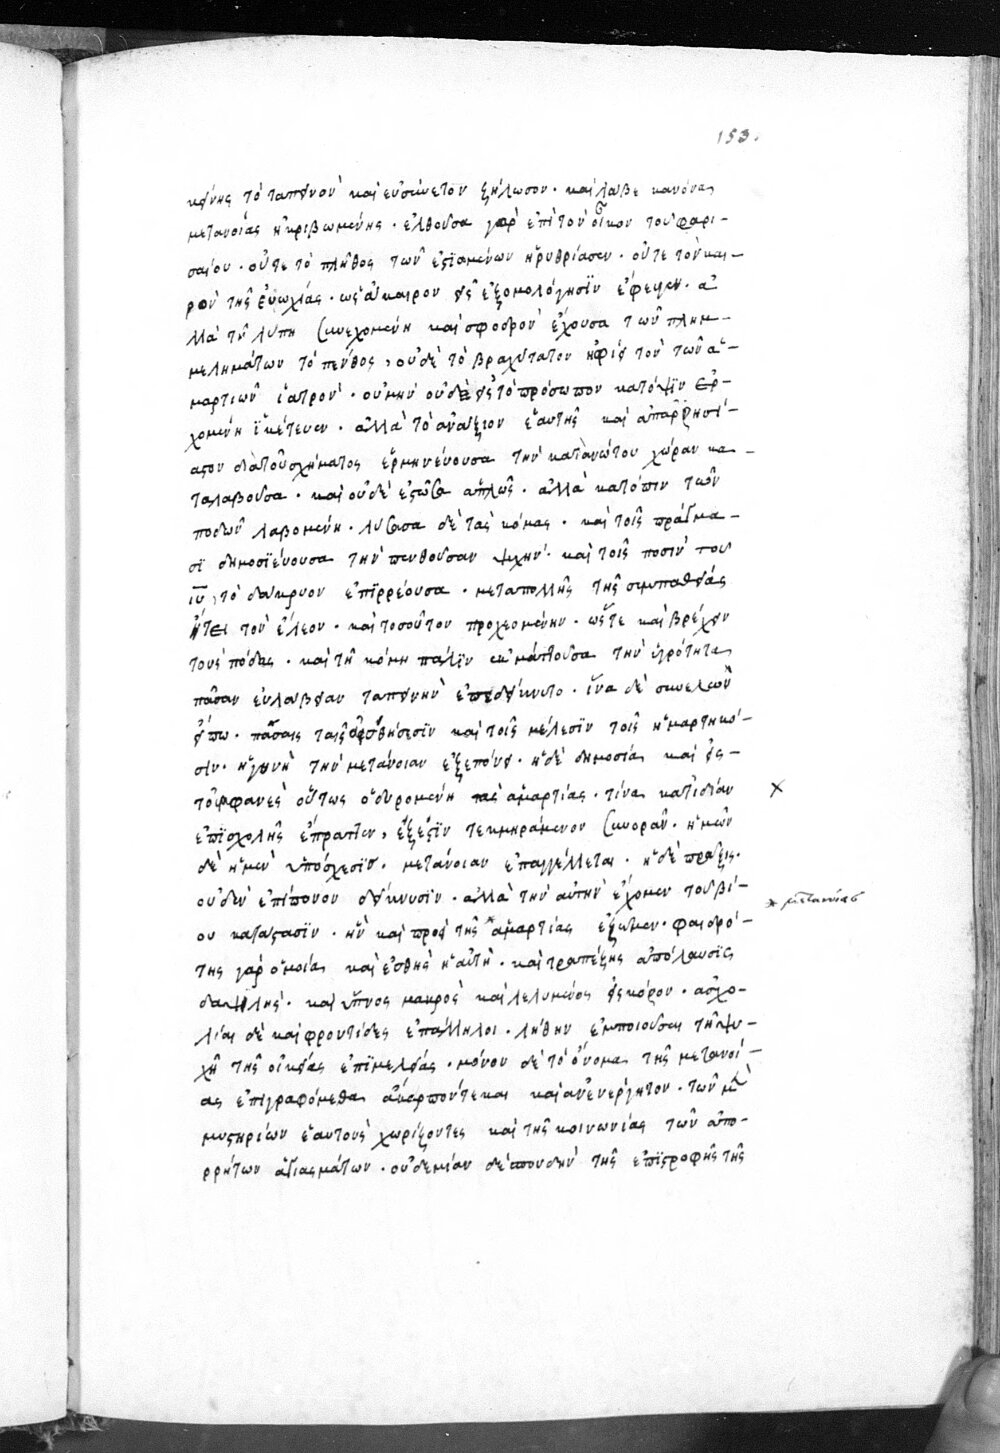 153.
κείνης τὸ ταπεινὸν καὶ εὐσύνετον ζήλωσον · καὶ λάβε κανόνας
μετανοίας ἠκριβωμένης · ἐλθοῦσα γὰρ ἐπὶ τὸν οἶκον τοῦ φαρι-
σαίου · οὔτε τὸ πλῆθος τῶν ἑστιαμένων ἠρυθρίασεν · οὔτε τὸν και-
ρὸν τῆς εὐωχίας · ὡς ἄκαιρον εἰς ἐξομολόγησιν ἔφυγεν · ἀ
λλὰ τῇ λύπῃ συνεχομένη καὶ σφοδρὸν ἔχουσα τῶν πλημ-
μελημάτων τὸ πένθος, οὐδὲ τὸ βραχύτατον ἠφίει τὸν τῶν ἁ-
μαρτιῶν ἰατρόν · οὐ μὴν οὐδὲ εἰς τὸ πρόσωπον κατόψιν ἐρ-
χομένη ἱκέτευεν · ἀλλὰ τὸ ἀνάξιον ἑαυτῆς καὶ ἀπαρρησί-
αστον διὰ τοῦ σχήματος ἑρμηνεύουσα τὴν κατὰ νώτου χώραν κα-
ταλαβοῦσα · καὶ οὐδὲ ἑστῶσα ἁπλῶς · ἀλλὰ κατόπιν τῶν
ποδῶν λαβομένη · λύσασα δὲ τὰς κόμας · καὶ τοῖς πράγμα-
σι δημοσιεύουσα τὴν πενθοῦσαν ψυχὴν · καὶ τοῖς ποσὶν τοῦ
ιυ, τὸ δάκρυον ἐπιρρέουσα · μετὰ πολλῆς τῆς συμπαθείας
ᾔτει τὸν ἔλεον · καὶ τοσοῦτον προχεομένην · ὥστε καὶ βρέχειν
τοὺς πόδας · καὶ τῇ κόμῃ πάλιν ἐκμάττουσα τὴν ὑγρότητα
πᾶσαν εὐλάβειαν ταπεινὴν ἐπεδείκνυτο · ἵνα δὲ συνελὼν
εἴπω · πάσαις ταῖς αἰσθήσεσιν καὶ τοῖς μέλεσιν τοῖς ἡμαρτηκό-
σιν · ἡ γυνὴ τὴν μετάνοιαν ἐξεπόνει · ἡ δὲ δημοσία καὶ εἰς
τοὐμφανὲς οὕτως ὀδυρομένη τὰς ἁμαρτίας · τίνα κατιδίαν ×
ἐπὶ σχολῆς ἔπραττεν, ἔξεστιν τεκμηράμενον συνορᾶν · ἡμῶν
δὲ ἡ μὲν ὑπόσχεσις · μετάνοιαν ἐπαγγέλλεται · ἡ δὲ πρᾶξις ·
οὐδὲν ἐπίπονον δείκνυσιν · ἀλλὰ τὴν αὐτὴν ἔχομεν τοῦ βί-
ου κατάστασιν · ἣν καὶ πρὸ τῆς * ἁμαρτίας ἔχωμεν · φαιδρό-
* μετανοίας
της γὰρ ὁμοία καὶ ἐσθὴς ἡ αὐτὴ · καὶ τραπέζης ἀπόλαυσις
δαψιλής · καὶ ὕπνος μακρὸς καὶ λελυμένος εἰς κόρον · ἀσχο-
λίαι δὲ καὶ φροντίδες ἐπάλληλοι · λήθην ἐμποιοῦσαι τῇ ψυ-
χῇ τῆς οἰκείας ἐπιμελείας · μόνον δὲ τὸ ὄνομα τῆς μετανοί-
ας ἐπιγραφόμεθα ἄκαρπόν τε καὶ ἀνενέργητον · τῶν μὲν
μυστηρίων ἑαυτοὺς χωρίζοντες καὶ τῆς κοινωνίας τῶν ἀπο-
ρρήτων ἁγιασμάτων · οὐδεμίαν δὲ σπουδὴν τῆς ἐπιστροφῆς τῆς